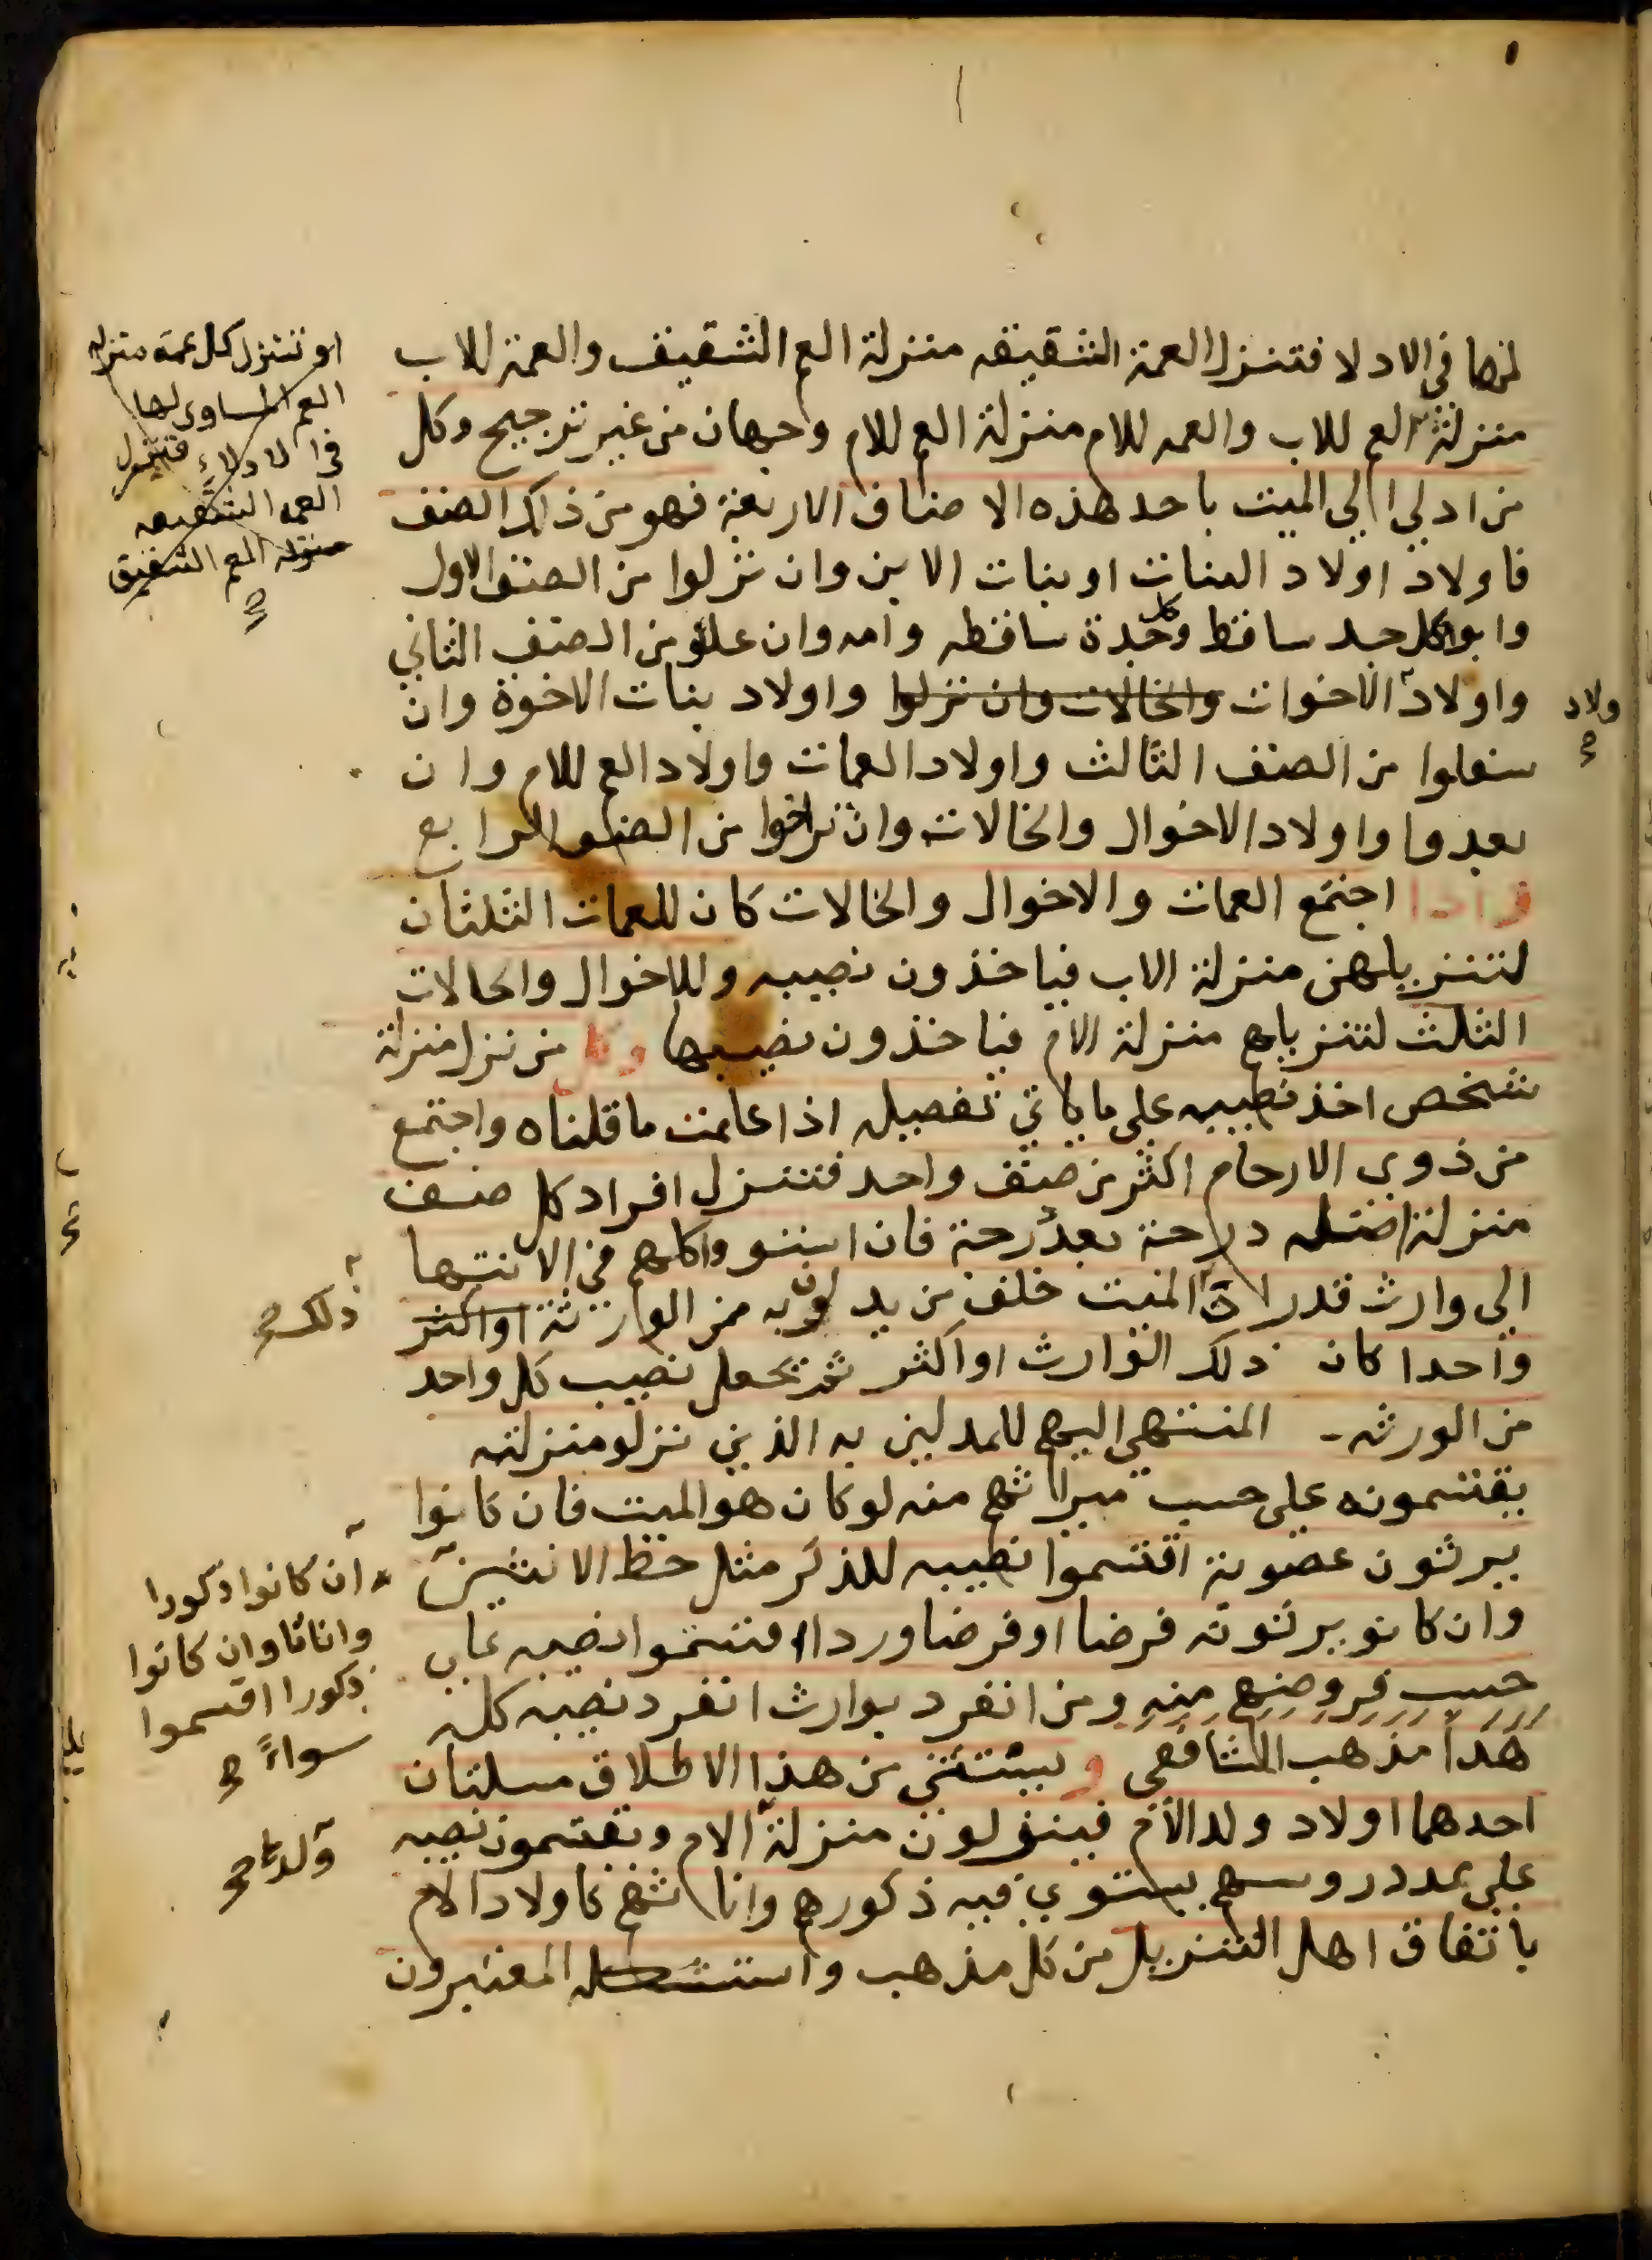 لها في الادلا فتنزل العمة الشقيقه منزلة العم الشقيق والعمة للاب
منزلة العم للاب والعمه للام منزلة العم للام وجهان من غير ترجيح وكل
من ادلي الي الميت باحد هذه الاصناف الاربعة فهو من ذلك الصنف
فاولاد اولاد البنات او بنات الابن وان نزلوا من الصنف الاول
وابو كل جد ساقط وكل جدة ساقطه وامه وان علو من الصنف الثاني
واولاد الاخوات والخالات وان نزلوا واولاد بنات الاخوة وان
سفلوا من الصنف الثالث واولاد العمات واولاد العم للام وان
بعدوا واولاد الاخوال والخالات وان تراخوا من الصنف الرابع
فاذا اجتمع العمات والاخوال والخالات كان للعمات الثلثان
لتنزيلهن منزلة الاب فياخذون نصيبه وللاخوال والخالات
الثلث لتنزيلهم منزلة الام فياخذون نصيبها وكل من نزل منزلة
شخص اخذ نصيبه علي ما ياتي تفصيله اذا علمت ما قلناه واجتمع
من ذوي الارحام اكثر من صنف واحد فتنزل افراد كل صنف
منزلة اصله درجة بعد درجة فان استووا كلهم في الانتها
الي وارث قدر ان الميت خلف من يدلون به من الوارثة او اكثر
واحدا كان ذلك الوارث او اكثر ثم تجعل نصيب كل واحد
من الورثه المنتهي اليهم للمدلين به الذين نزلو منزلته
يقتسمونه علي حسب ميراثهم منه لو كان هو الميت فان كانوا
يرثون عصوبة اقتسموا نصيبه للذكر مثل حظ الانثيين
وان كانو يرثونه فرضا او فرضا وردا اقتسموا نصيبه علي
حسب فروضهم منه ومن انفرد بوارث انفرد نصيبه كله
هذا مذهب الشافعي ويستثني من هذا الاطلاق مسلتان
احدهما اولاد ولد الام فينزلون منزلة الام ويقتسمون نصيبه
علي عدد روسهم يستوي فيه ذكورهم واناثهم كاولاد الام
باتفاق اهل التنزيل من كل مذهب واستشكله المعتبرون
او تنزل كل عمة منزلة
العم المساوي لها
في الادلاء فتنزل
العمه الشقيقه
منزلة العم الشقيق
ولاد
ذلك
ان كانوا ذكورا
واناثا وان كانوا
ذكورا اقتسموا
سواءً